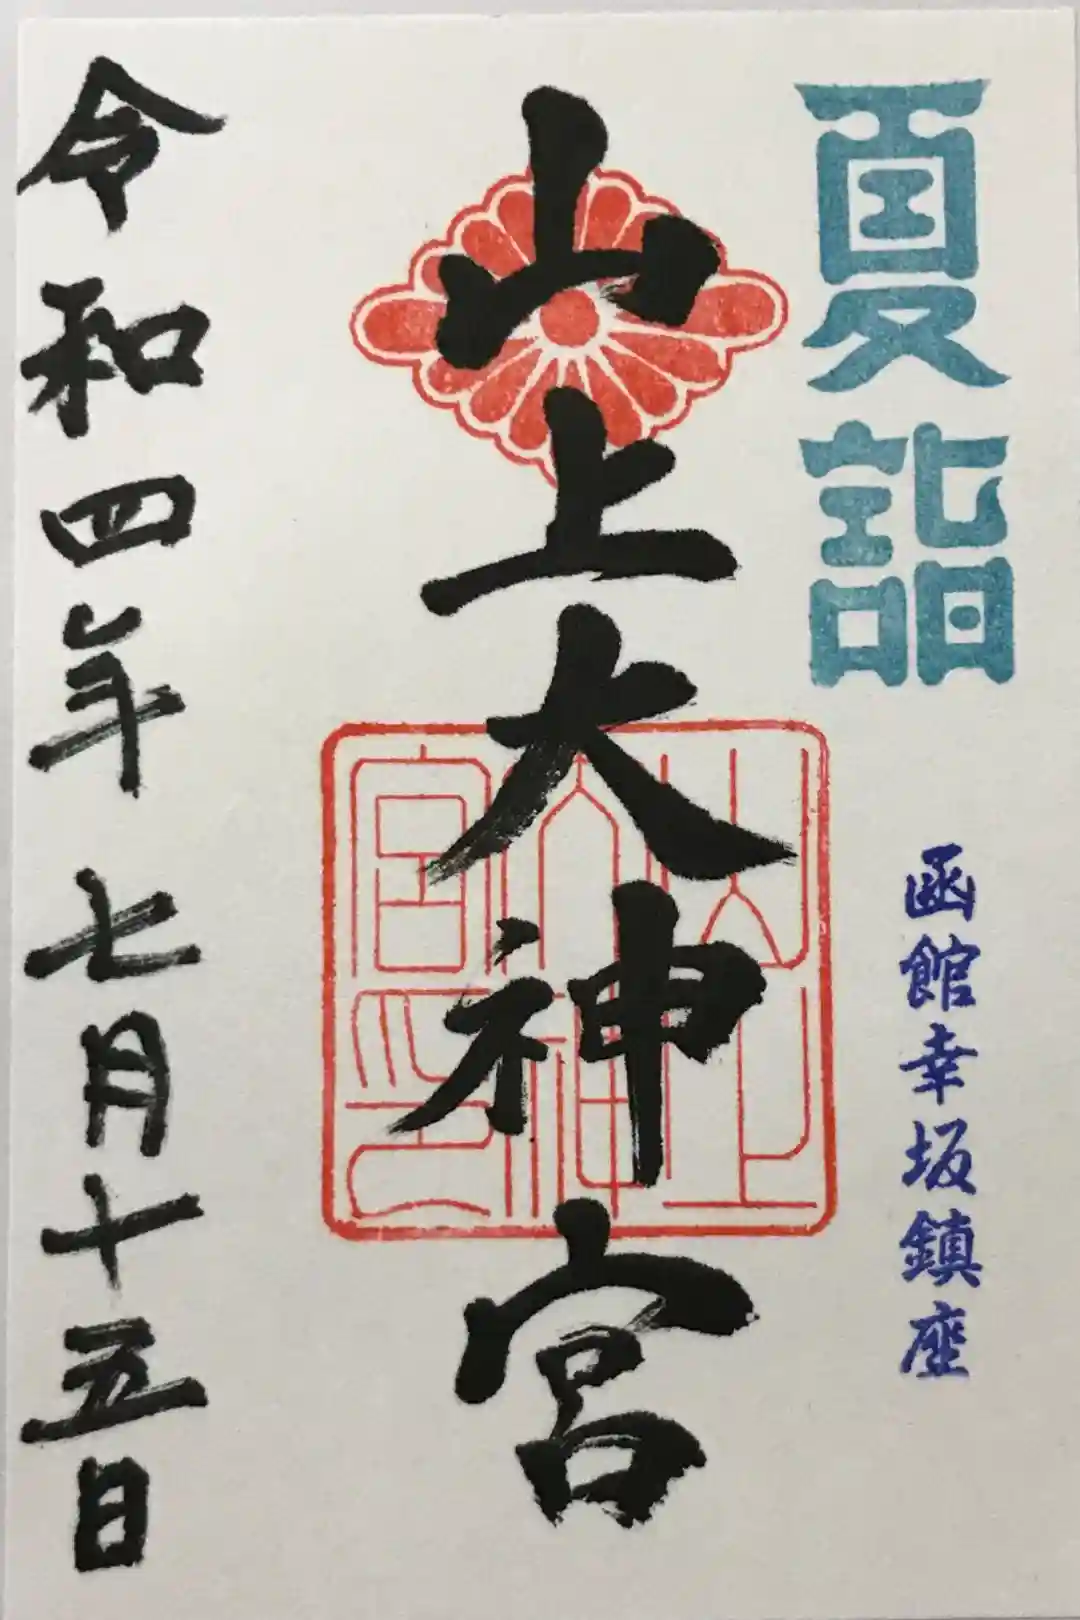 夏詣
函館幸坂鎮座
山上大神宮
山上大神宮印
令和四年七月十五日